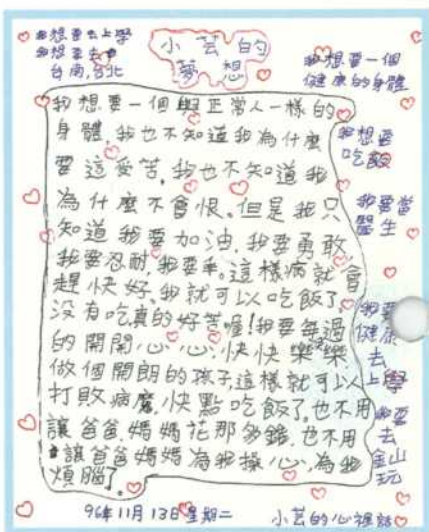 我想要去上學
我想要去
台南,台北
小芸的
夢想
我想要一個
健康的身體
我想要一個與正常人一樣的
身體,我也不知道我為什麼
要這受苦,我也不知道我
為什麼不會恨。但是我只
知道我要加油,我要勇敢
我要忍耐,我要乖。這樣病就會
趕快好。我就可以吃飯了
沒有吃真的好苦喔!我要每過
的開開心心快快樂樂
做個開朗的孩子這樣就可以
打敗病魔,快點吃飯了,也不用
讓爸爸媽媽花那多錢,也不用
讓爸爸媽媽為我操心為我
煩腦了。
我想要
吃飯
我要當
醫生
我要
健康
去
上學
我要
去
金山
玩
96年11月13日星期二
小芸的心裡話